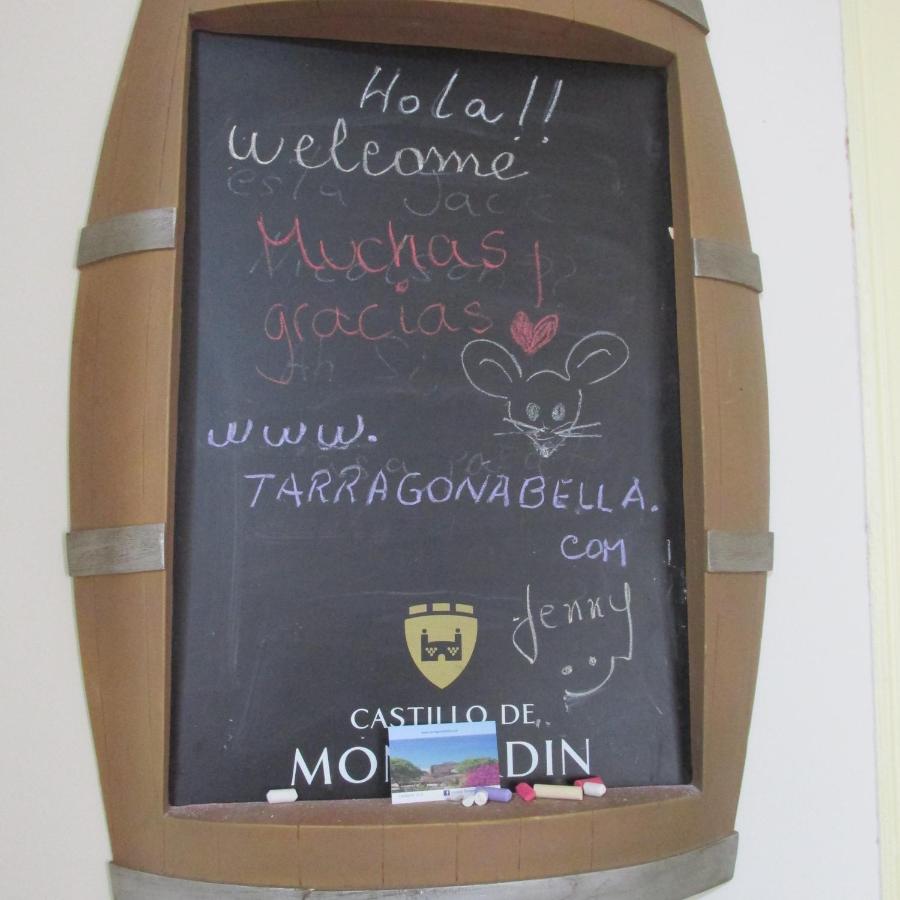 Hola!!
Welcome
esta Jack
Muchas
gracias
www.
TARRAGONABELLA.
COM
Jenny
CASTILLO DE